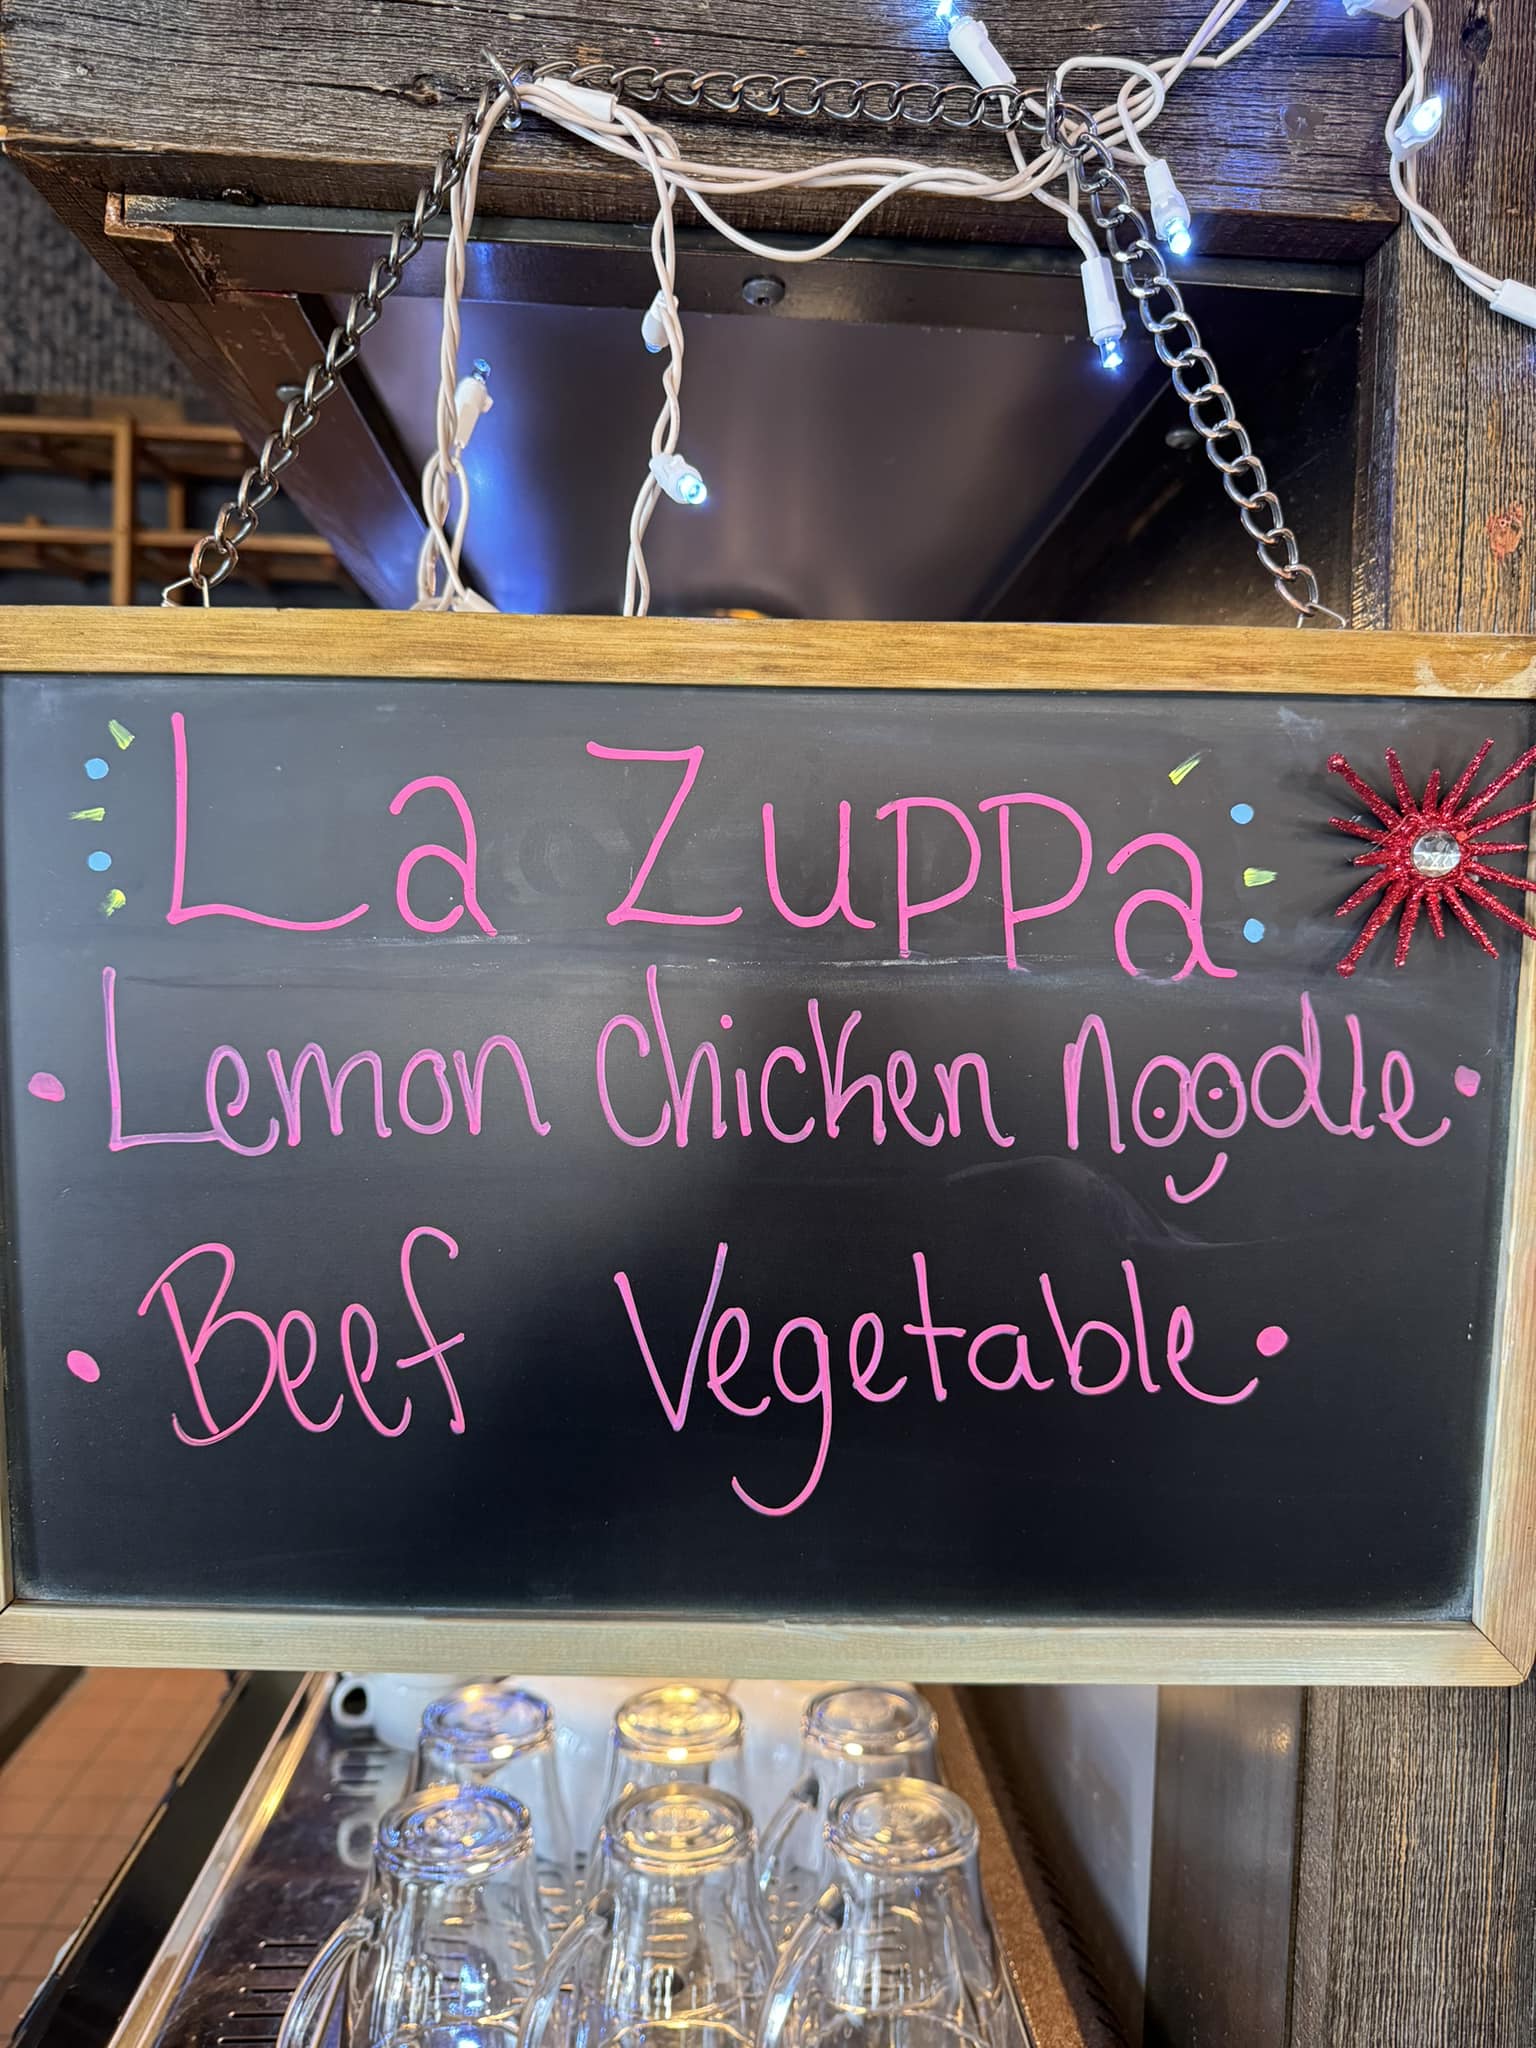 La Zuppa
Lemon Chicken Noodle
Beef Vegetable